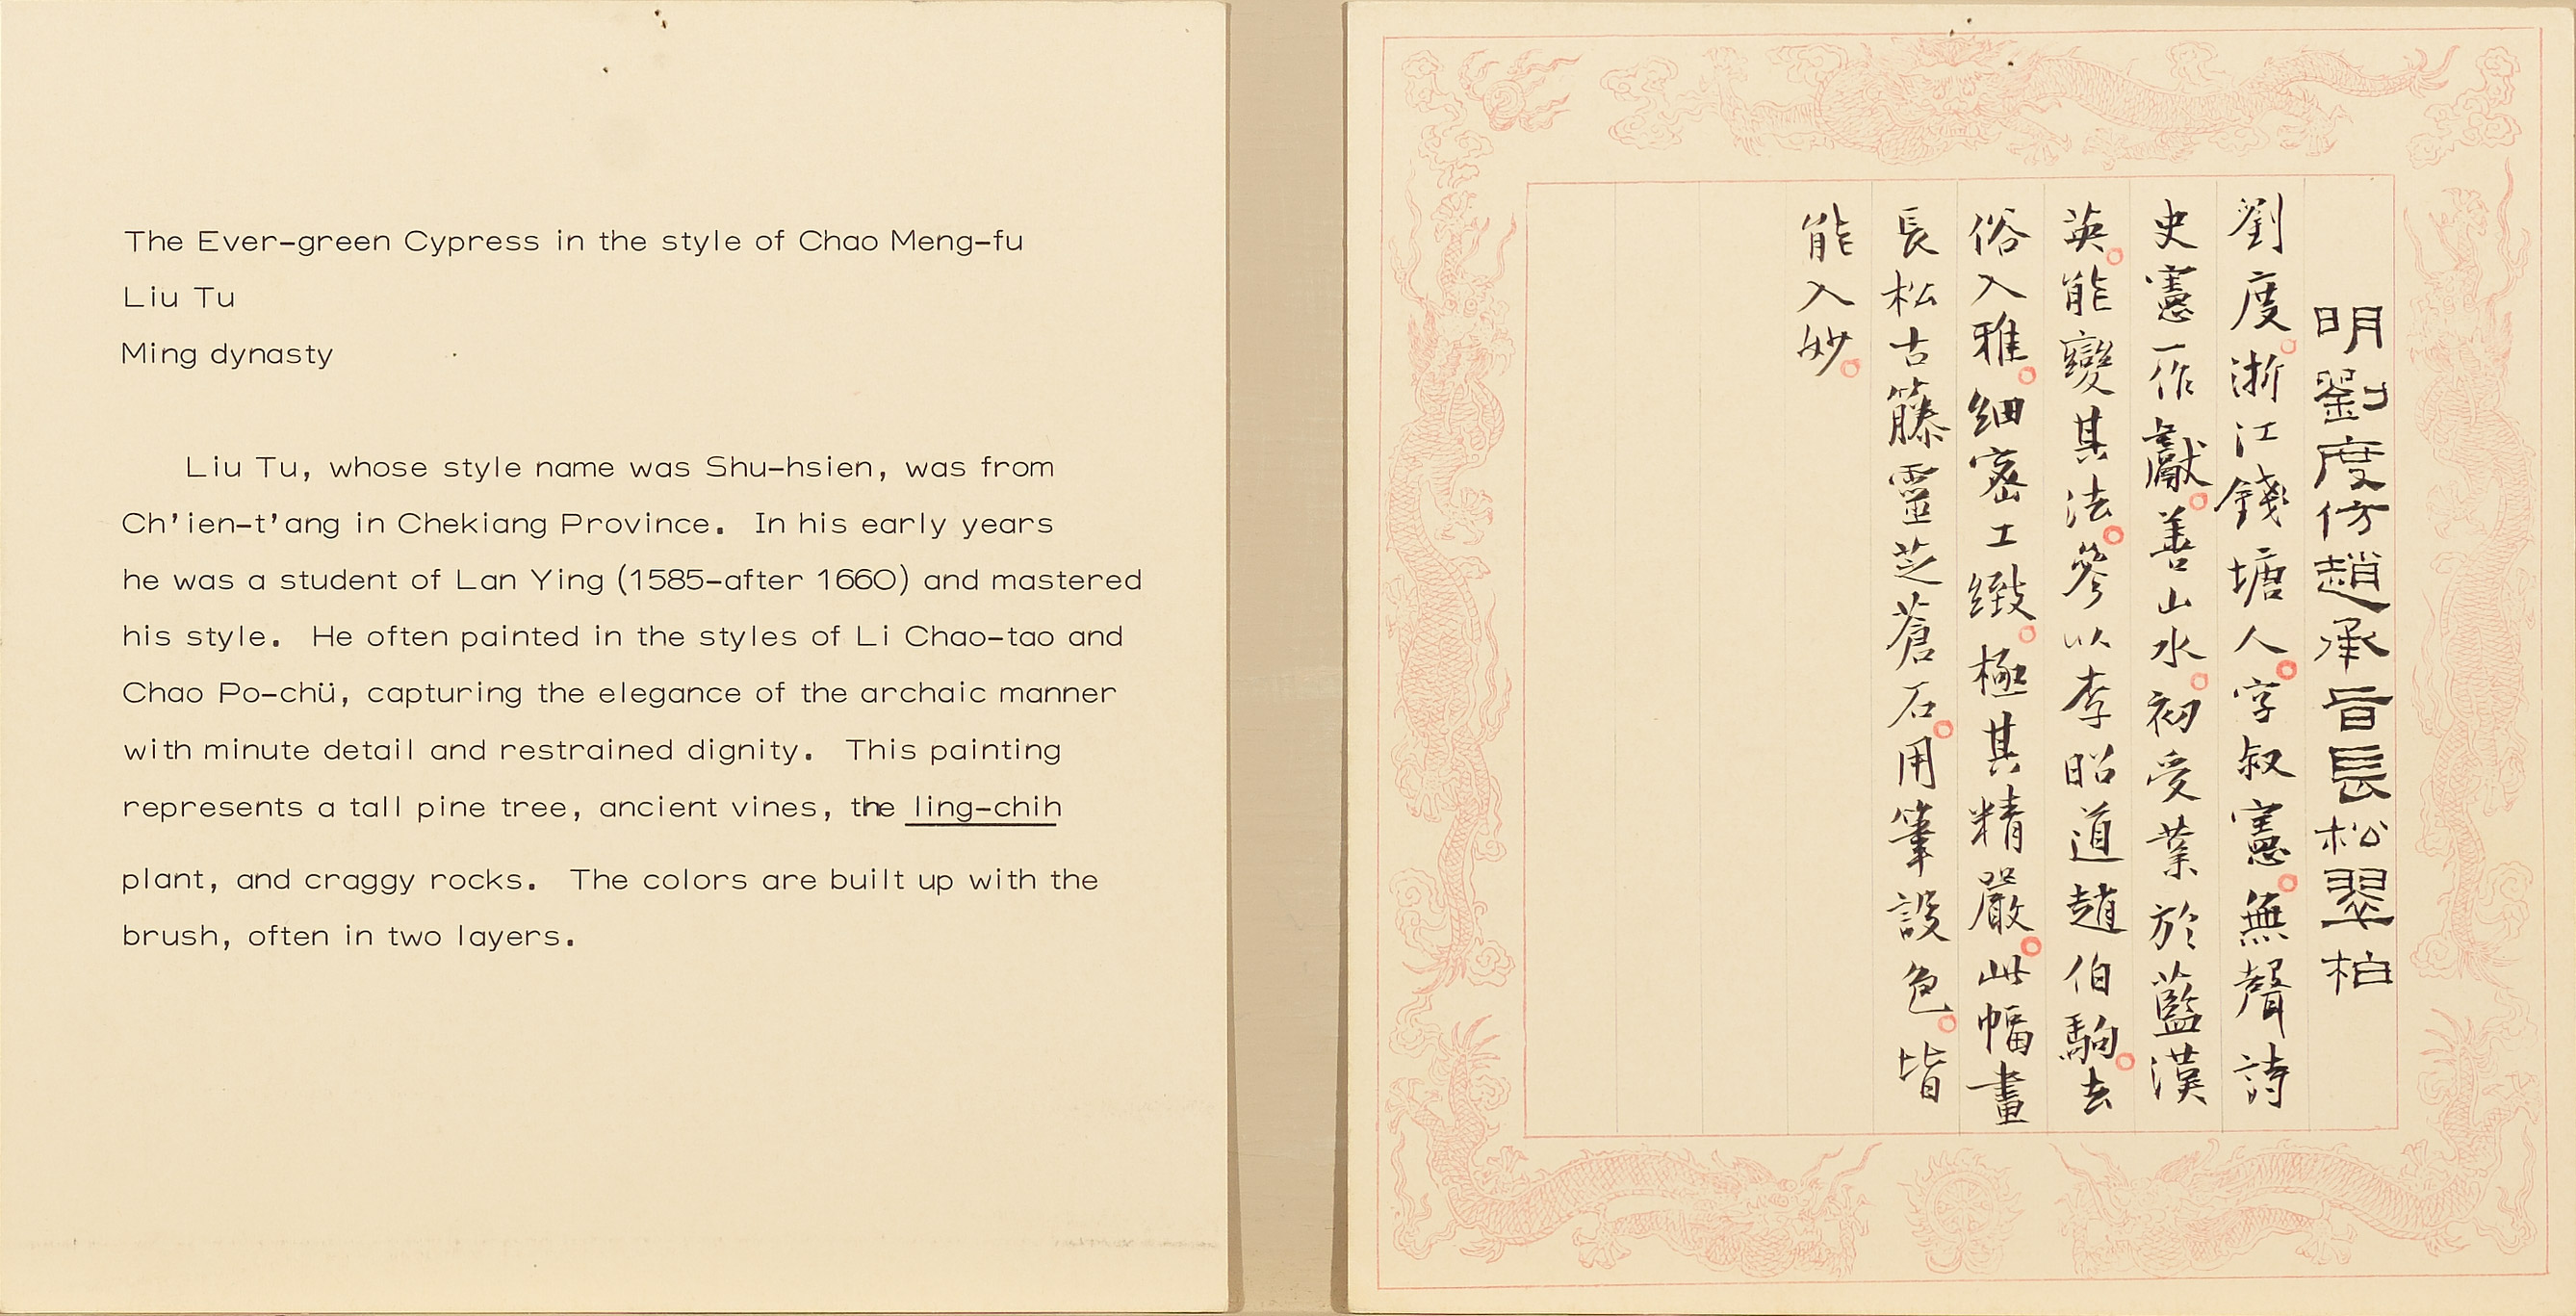 The Ever-green Cypress in the style of Chao Meng-fu
Liu Tu
Ming dynasty
Liu Tu, whose style name was Shu-hsien, was from
Ch'ien-t'ang in Chekiang Province. In his early years
he was a student of Lan Ying (1585-after 1660) and mastered
his style. He often painted in the styles of Li Chao-tao and
Chao Po-chü, capturing the elegance of the archaic manner
with minute detail and restrained dignity. This painting
represents a tall pine tree, ancient vines, the ling-chih
plant, and craggy rocks. The colors are built up with the
brush, often in two layers.
明劉度仿趙承旨長松翠柏
劉度。浙江錢塘人。字叔憲。無聲詩
史憲一作獻。善山水。初受業於藍漢
英。能變其法。參以李昭道趙伯駒。去
俗入雅。細密工緻。極其精嚴。此幅畫
長松古籐靈芝蒼石。用筆設色。皆
能入妙。